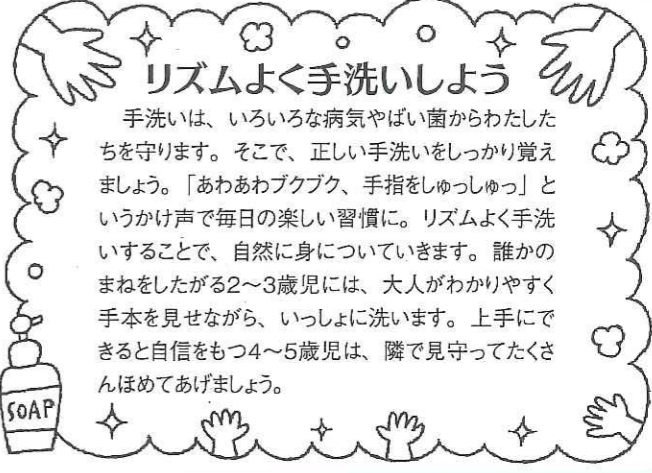 リズムよく手洗いしよう
　手洗いは、いろいろな病気やばい菌からわたした
ちを守ります。そこで、正しい手洗いをしっかり覚え
ましょう。「あわあわブクブク、手指をしゅっしゅっ」と
いうかけ声で毎日の楽しい習慣に。リズムよく手洗
いすることで、自然に身についていきます。誰かの
まねをしたがる2〜3歳児には、大人がわかりやすく
手本を見せながら、いっしょに洗います。上手にで
きると自信をもつ4〜5歳児は、隣で見守ってたくさ
んほめてあげましょう。
SOAP